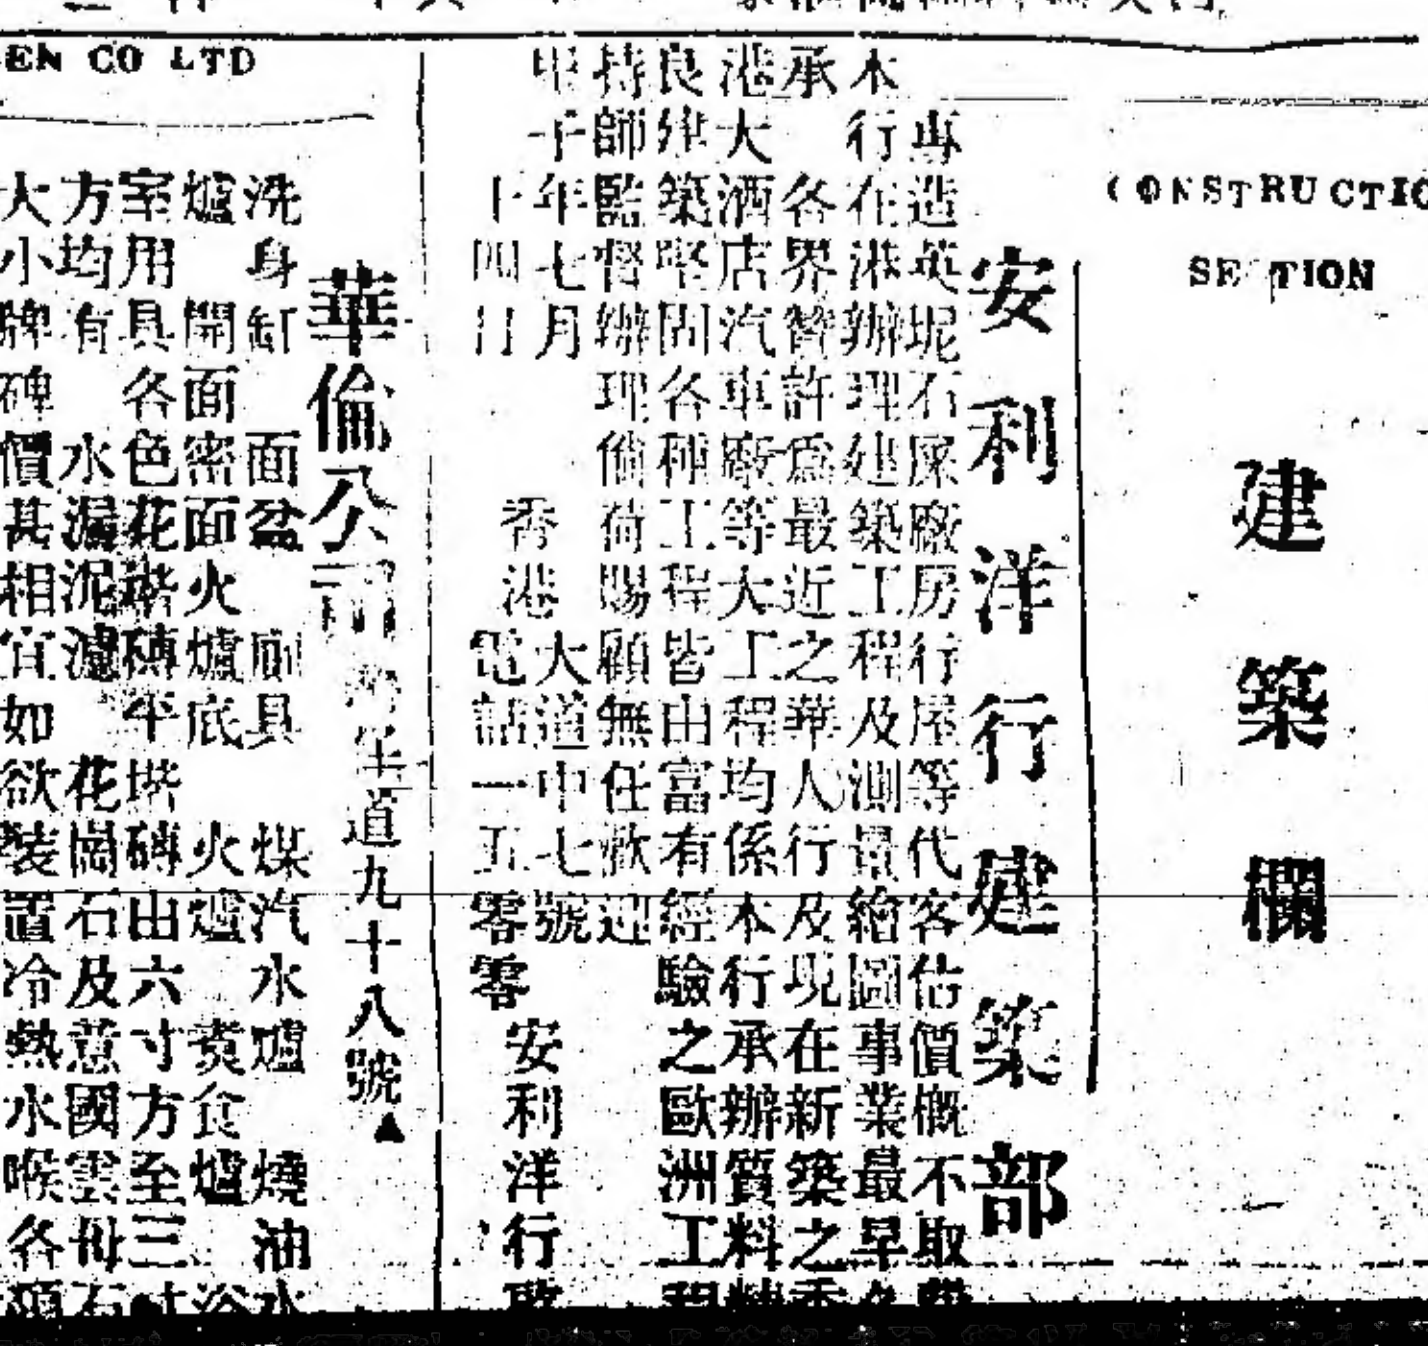 CONSTRUCTIO
SECTION
建築欄
安利洋行建築部
專造英坭石屎廠房行屋等代客估價概不取費
本行在港辦理建築工程及測量繪圖事業最早久
承各界贊許為最近之華人行及現在新築之香
港大酒店汽車廠等大工程均係本行承辦質料精
良建築堅固各種工程皆由富有經驗之歐洲工程
師監督辦理倘荷賜顧無任歡迎
甲子年七月
十四日
香港大道中七號
電話一五零零
安利洋行啟
EN CO LTD
華倫公司
道九十八號▲
洗身缸 面盆 廁具 煤汽水爐 燒油水
爐 開面密面火爐底 火爐 煑食爐 浴
室用具各色花階磚平堦磚由六寸方至三寸
方均有 水漏泥濾 花崗石及意國雲母石
大小牌碑價甚相宜如欲裝置冷熱水喉各類